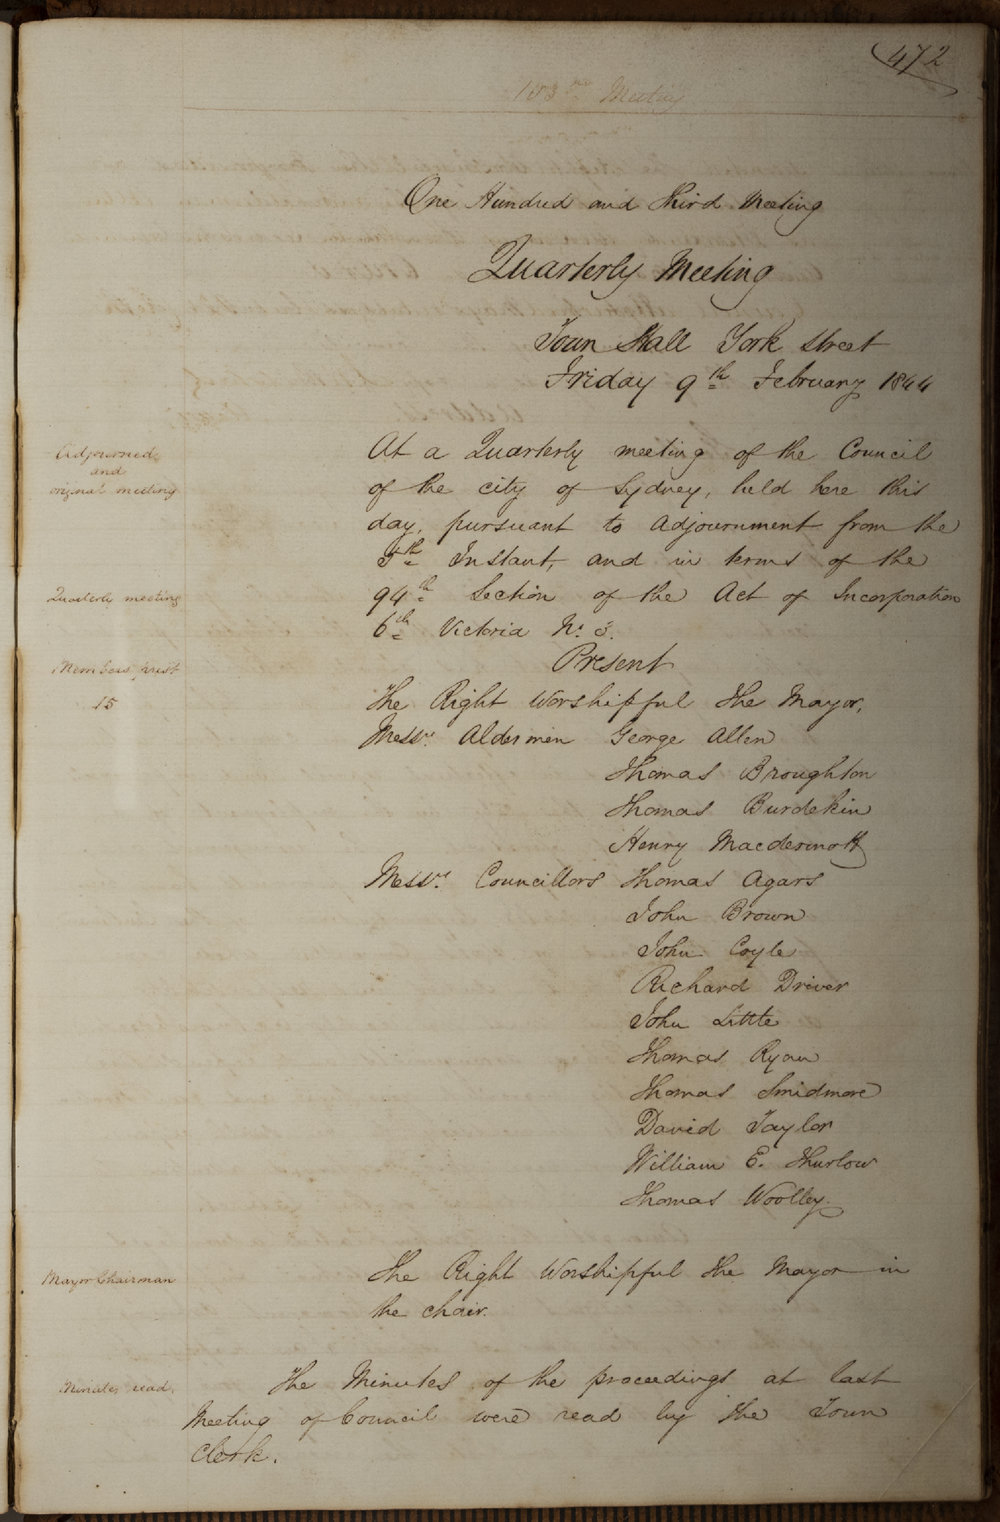 472
103rd Meeting
One Hundred and Third Meeting
Quarterly Meeting
Town Hall York Street
Friday 9th February 1844
Adjourned
and
original meeting
At a Quarterly meeting of the Council
of the city of Sydney, held here this
day, pursuant to Adjournment from the
5th Instant, and in terms of the
Quarterly meeting
94th Section of the Act of Incorporation
6th Victoria No. 3.
Present
Members prest
15
The Right Worshipful The Mayor,
Messrs. Aldermen George Allen
Thomas Broughton
Thomas Burdekin
Henry Macdermott
Messrs. Councillors Thomas Agars
John Brown
John Coyle
Richard Driver
John Little
Thomas Ryan
Thomas Smidmore
David Taylor
William E. Thurlow
Thomas Woolley.
Mayor Chairman
The Right Worshipful the Mayor in
the chair.
Minutes read.
The Minutes of the proceedings at last
Meeting of Council were read by the Town
Clerk.